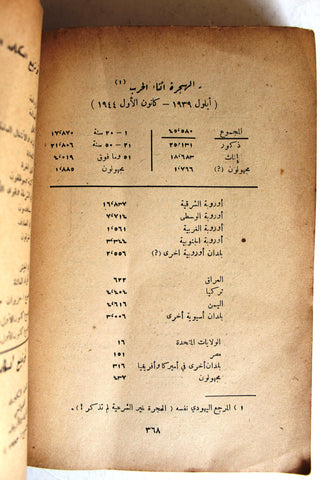 الهجرة اثناء الحرب (١)
( أيلول ١٩٣٩ – كانون الأول ١٩٤٤ )
المجموع ٤٥٬٥٨٠ ١ – ٢٠ سنة ١٧٬٨٧٠
ذكور ٢٥٬١٣١ ٢١ – ٥٠ سنة ٢١٬٨٠٦
إناث ١٨٬٦٨٣ ٥١ وما فوق ٤٬٠١٩
مجهولون (؟) ١٬٧٦٦ مجهولون ١٬٨٨٥
أوروبة الشرقية ١٦٬٨٣٧
أوروبة الوسطى ٧٬٧١٤
أوروبة الغربية ١٬٥٦١
أوروبة الجنوبية ٣٬٣٤٤
بلدان أوروبية اخرى (؟) ٢٬٥٥٦
العراق ٦٢٢
تركيا ٤٬٤٠٤
اليمن ٤٬٦١٦
بلدان أسيوية أخرى ٣٬٠٠٦
الولايات المتحدة ١٦
مصر ١٥١
بلدان أخرى في اميركا وأفريقيا ٣١٦
مجهولون ٤٣٧
١ ) المرجع اليهودي نفسه ( الهجرة غير الشرعية لم تذكر ! ) .
٣٦٨